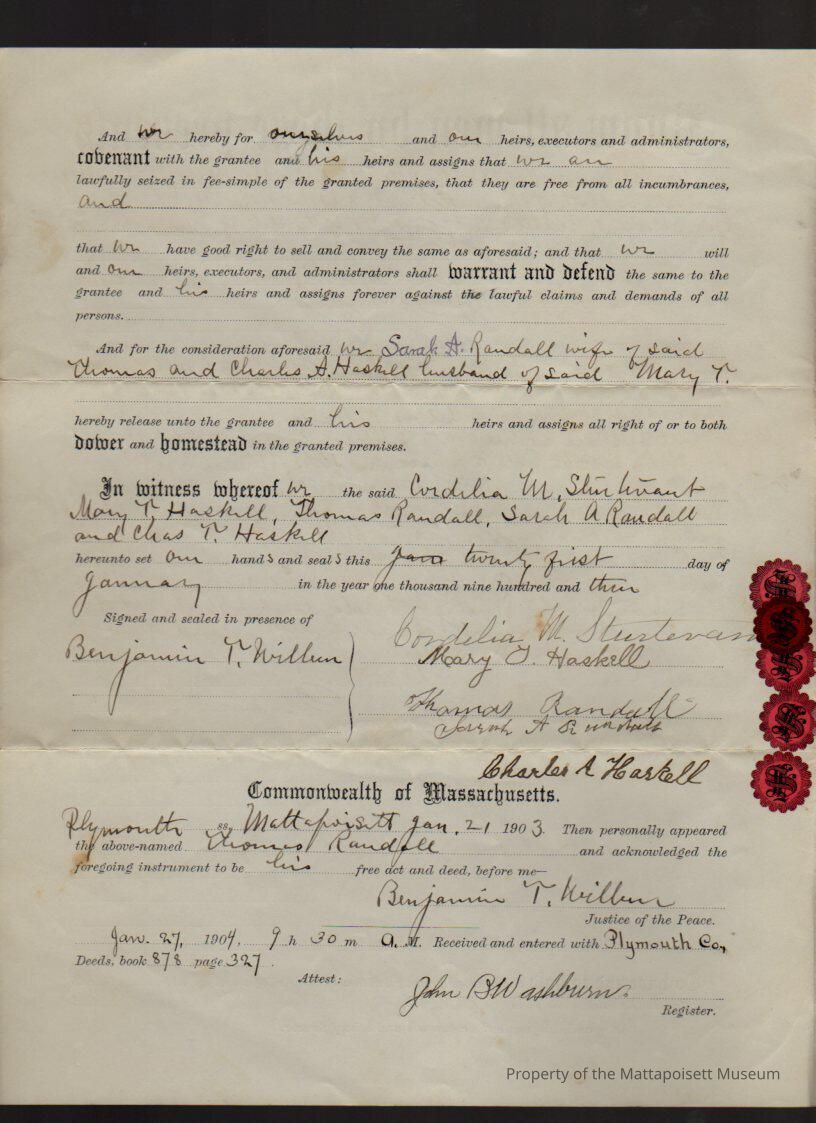 And we hereby for ourselves and our heirs, executors and administrators,
covenant with the grantee and his heirs and assigns that we are
lawfully seized in fee-simple of the granted premises, that they are free from all incumbrances,
and
that we have good right to sell and convey the same as aforesaid; and that we will
and our heirs, executors, and administrators shall warrant and defend the same to the
grantee and his heirs and assigns forever against the lawful claims and demands of all
persons.
And for the consideration aforesaid we Sarah A. Randall wife of said
Thomas and Charles A. Haskell husband of said Mary T.
hereby release unto the grantee and his heirs and assigns all right of or to both
dower and homestead in the granted premises.
In witness whereof we the said Cordelia M, Sturtivant
Mary T. Haskell, Thomas Randall, Sarah A Randall
and Chas T. Haskell
hereunto set our hands and seals this twenty first day of
January in the year one thousand nine hundred and three
Signed and sealed in presence of
Cordelia M. Sturtevant
Benjamin T. Wilbur
Mary T. Haskell
Thomas Randall
Sarah A Randall
Charles A Haskell
Commonwealth of Massachusetts.
Plymouth ss. Mattapoisett Jan. 21 1903. Then personally appeared
the above-named Thomas Randall and acknowledged the
foregoing instrument to be his free act and deed, before me—
Benjamin T. Wilbur
Justice of the Peace.
Jan. 27, 1904, 9 h 30 m A. M. Received and entered with Plymouth Co,
Deeds, book 878 page 327.
Attest:
John B Washburn.
Register.
Property of the Mattapoisett Museum